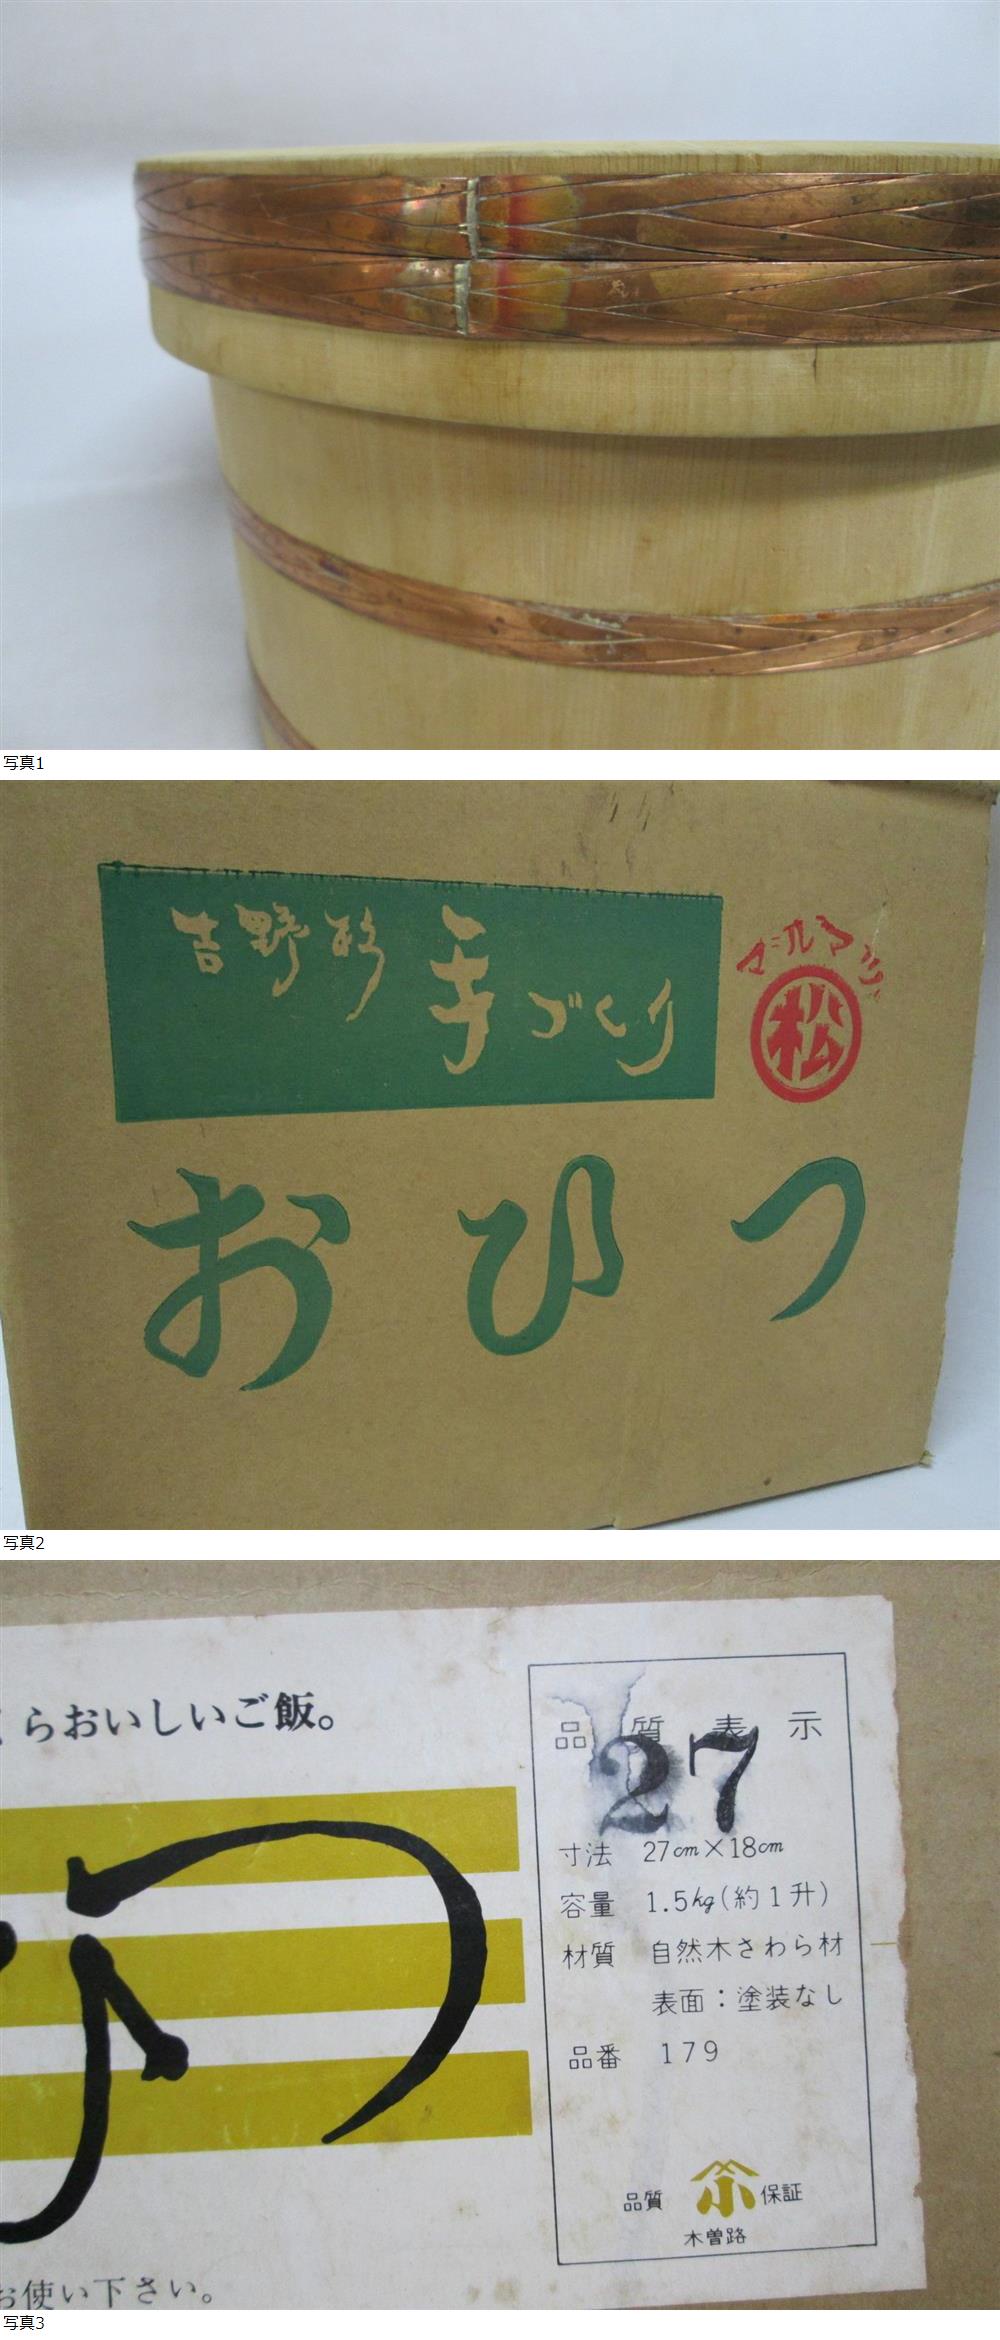 写真1
吉野杉 手づくり
マルマツ
松
おひつ
写真2
らおいしいご飯。
品質表示
27
寸法 27cm×18cm
容量 1.5kg(約1升)
材質 自然木さわら材
表面：塗装なし
品番 179
品質 保証
木曽路
つ
お使い下さい。
写真3